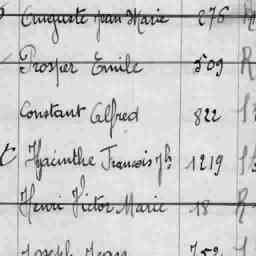 Auguste Jean Marie 876 R
Prosper Emile 509 R
Constant Alfred 822
Hyacinthe François Jh 1219
Henri Victor Marie 18 R
Joseph Jean 752